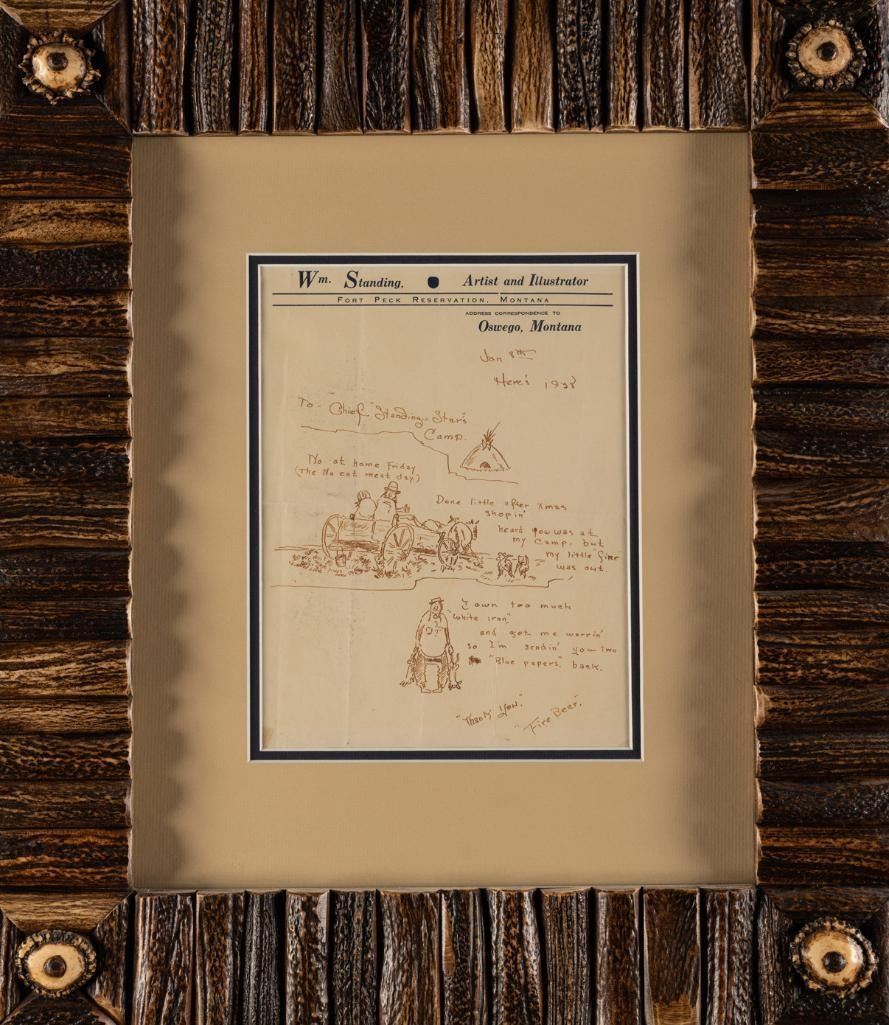 Wm. Standing, Artist and Illustrator
Fort Peck Reservation, Montana
ADDRESS CORRESPONDENCE TO
Oswego, Montana
Jan 8th
Here's 1938
To - "Chief" Standing-Star's
Camp.
No at home Friday
(The No eat meat day)
Done little after Xmas
shopin'
heard you was at
my camp. but
my little fire
was out.
I own too much
"White iron"
and got me worrin'
so I'm sendin' you two
"Blue papers" back.
"Thank You."
"Fire Bear."